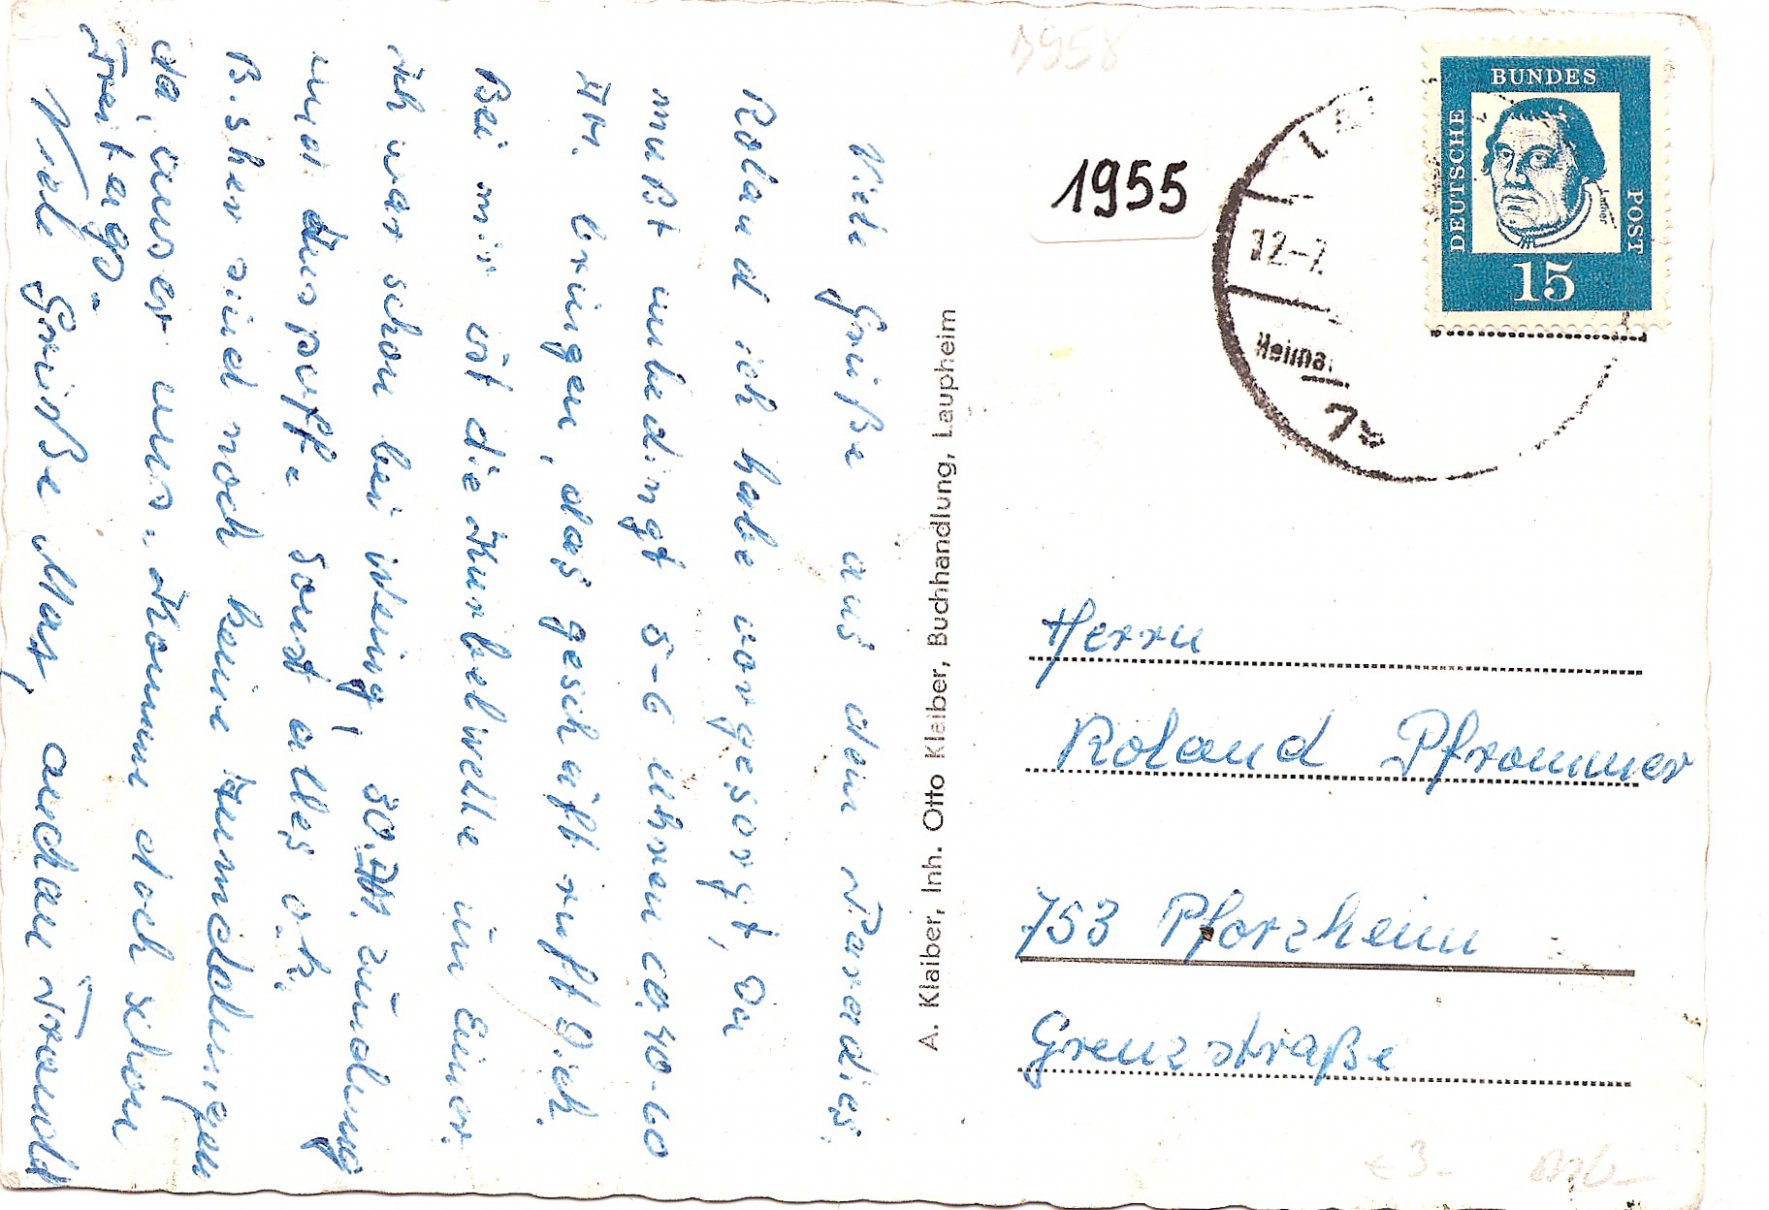 Viele Grüße aus dem Paradies.
Roland ich habe vorgesorgt, Du
mußt unbedingt 5-6 Uhren a 40-60
DM. bringen, das geschäft ruft Dich.
Bei mir ist die Kurbelwelle im Eimer.
ich war schon bei 30.DM. zündung
und Auspuff sonst alles o.k.
Bisher sind noch keine
da, auser uns. Komm doch schon
Freitags.
Viele Grüße Max,
A. Klaiber, Inh. Otto Klaiber, Buchhandlung, Laupheim
1955
DEUTSCHE
BUNDES
POST
15
Luther
12-7.
Herrn
Roland Pfrommer
753 Pforzheim
Grenzstraße
€ 3.-